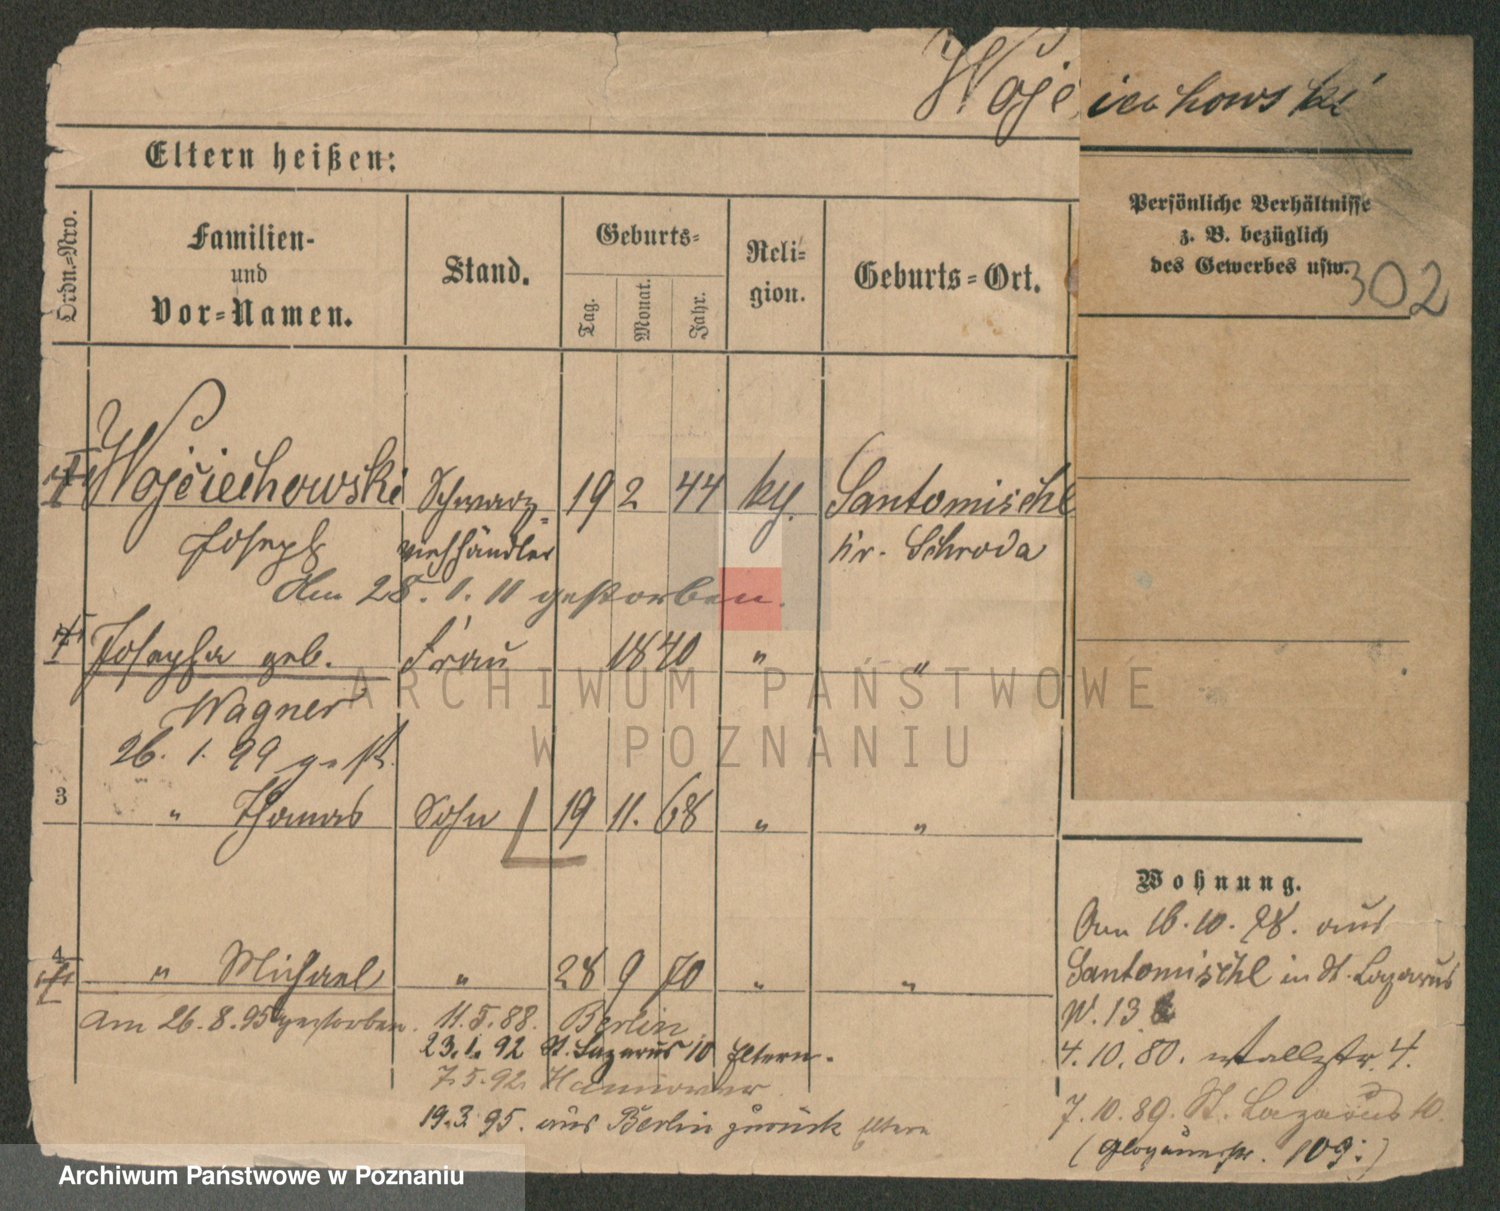 Wojciechowski
Eltern heißen:
Ordn.-Nro.
Familien-
und
Vor-Namen.
Stand.
Geburts-
Tag.
Monat.
Jahr.
Reli-
gion.
Geburts-Ort.
Persönliche Verhältnisse
z. B. bezüglich
des Gewerbes usw.
302
Wojciechowski Schwarz- 19 2 44 Santomischl
Joseph viehhändler Kr. Schroda
Am 28. 1. 11 gestorben.
Josepha geb. Frau 1840 " "
Wagner
26. 1. 99 gest.
3 " Thomas Sohn 19 11. 68 " "
4 " Michael " 28 9 70 " "
am 26. 8. 95 gestorben. 11. 5. 88. Berlin
23. 1. 92 St. Lazarus 10 Eltern.
7. 5. 92. Hannover
19. 3. 95. aus Berlin zurück Eltern
Wohnung.
Am 16. 10. 78. aus
Santomischl in St. Lazarus
W. 13
4. 10. 80. Wallstr. 4.
7. 10. 89. St. Lazarus 10.
(Glogauerstr. 109.)
ARCHIWUM PAŃSTWOWE
W POZNANIU
Archiwum Państwowe w Poznaniu